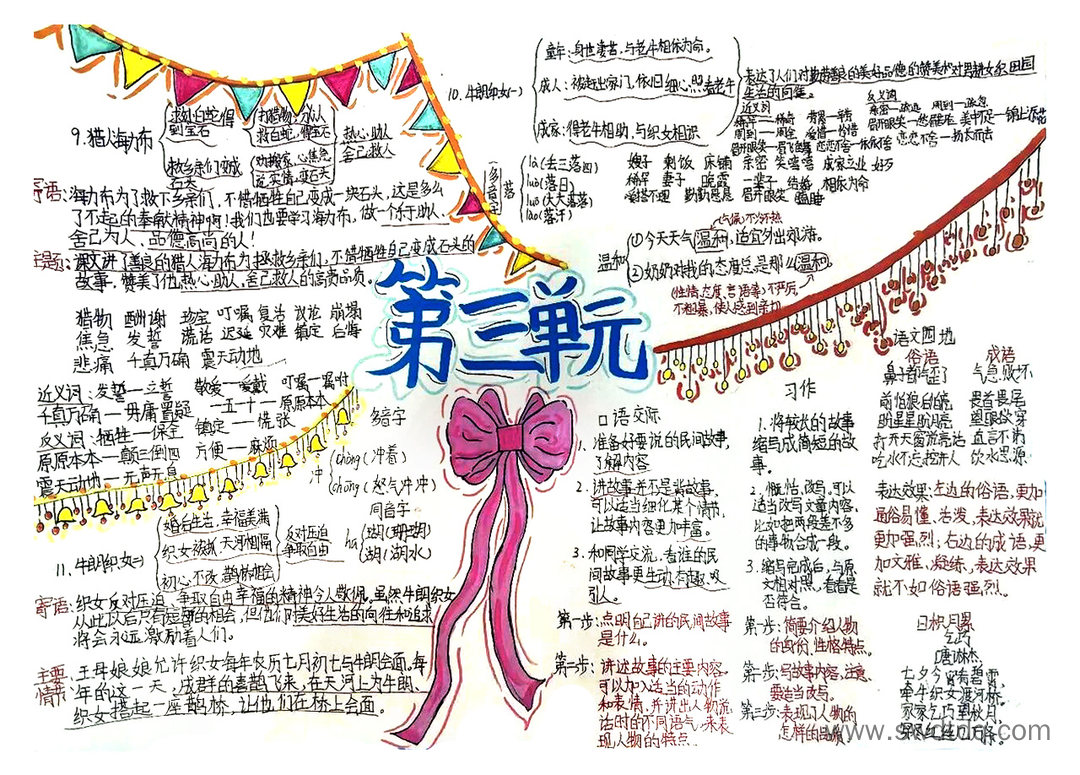 第三单元
9. 猎人海力布
救小白蛇,得
到宝石
打猎物,分众人
救白蛇,得宝石
热心助人
舍己救人
救乡亲们,变成
石头
劝搬家,心焦急
说实情,变石头
寄语:海力布为了救下乡亲们,不惜牺牲自己变成一块石头,这是多么
了不起的奉献精神啊!我们也要学习海力布,做一个乐于助人、
舍己为人、品德高尚的人!
主题:课文讲了善良的猎人海力布为了拯救乡亲们,不惜牺牲自己变成石头的
故事,赞美了他热心助人、舍己救人的高贵品质。
猎物 酬谢 珍宝 叮嘱 复活 议论 崩塌
焦急 发誓 谎话 迟延 灾难 镇定 后悔
悲痛 千真万确 震天动地
近义词:发誓—立誓 敬爱—爱戴 叮嘱—嘱咐
千真万确—毋庸置疑 一五一十—原原本本
镇定—慌张
反义词:牺牲—保全
原原本本—颠三倒四 方便—麻烦
震天动地—无声无息
多音字
冲
chòng(冲着)
chōng(怒气冲冲)
同音字
hú
瑚(珊瑚)
湖(湖水)
10. 牛郎织女(一)
童年:身世凄苦,与老牛相依为命。
成人:被赶出家门,依旧细心照看老牛
成家:得老牛相助,与织女相识
表达了人们对勤劳善良的美好品德的赞美和对男耕女织田园
生活的向往。
近义词
反义词
亲密—疏远 周到—疏忽
周到—周全 爱惜—珍惜
恋恋不舍—扬长而去
多音字
落
là(丢三落四)
luò(落日)
luō(大大落落)
lào(落汗)
嫂子 剩饭 床铺 亲密 笑嘻嘻 成家立业 好歹
稀罕 妻子 晚霞 一辈子 结婚 相依为命
爱搭不理 勤勤恳恳 眉开眼笑 瞌睡
温和
气候不冷不热
①今天天气温和,适宜外出郊游。
②奶奶对我的态度总是那么温和。
(性情、态度、言语等)不严厉、
不粗暴,使人感到亲切
11. 牛郎织女(二)
婚后生活 幸福美满
织女被抓 天河相隔
初心不改 鹊桥相会
反对压迫
争取自由
寄语:织女反对压迫、争取自由幸福的精神令人敬佩,虽然牛郎织女
从此以后只有短暂的相会,但他们对美好生活的向往和追求
将会永远激励着人们。
主要
情节
王母娘娘允许织女每年农历七月初七与牛郎会面,每
年的这一天,成群的喜鹊飞来,在天河上为牛郎、
织女搭起一座鹊桥,让他们在桥上会面。
口语交际
1. 准备好要说的民间故事,
了解内容
2. 讲故事并不是背故事,
可以适当细化某个情节,
让故事内容更加丰富。
3. 和同学交流,看谁的民
间故事更生动、有趣、吸
引人。
第一步:点明自己讲的民间故事
是什么。
第二步:讲述故事的主要内容,
可以加入适当的动作
和表情,并讲出人物说
话时的不同语气,来表
现人物的特点
习作
1. 将较长的故事
缩写成简短的故
事。
2. 概括、改写,可以
适当改写文章内容,
比如把两段差不多
的事物合成一段。
3. 缩写完成后,与原
文相对照,看看是
否符合。
第一步:简要介绍人物
的身份、性格特点。
第二步:写故事内容,注意
要适当改写。
第三步:表现了人物的
怎样的品质。
语文园地
俗语 成语
鼻子都气歪了 气急败坏
前怕狼后怕虎 畏首畏尾
盼星星盼月亮 望眼欲穿
打开天窗说亮话 直言不讳
吃水不忘挖井人 饮水思源
表达效果:左边的俗语,更加
通俗易懂、活泼,表达效果就
更加强烈;右边的成语,更
加文雅、凝练,表达效果
就不如俗语强烈。
日积月累
乞巧
唐·林杰
七夕今宵看碧霄,
牵牛织女渡河桥。
家家乞巧望秋月,
穿尽红丝几万条。